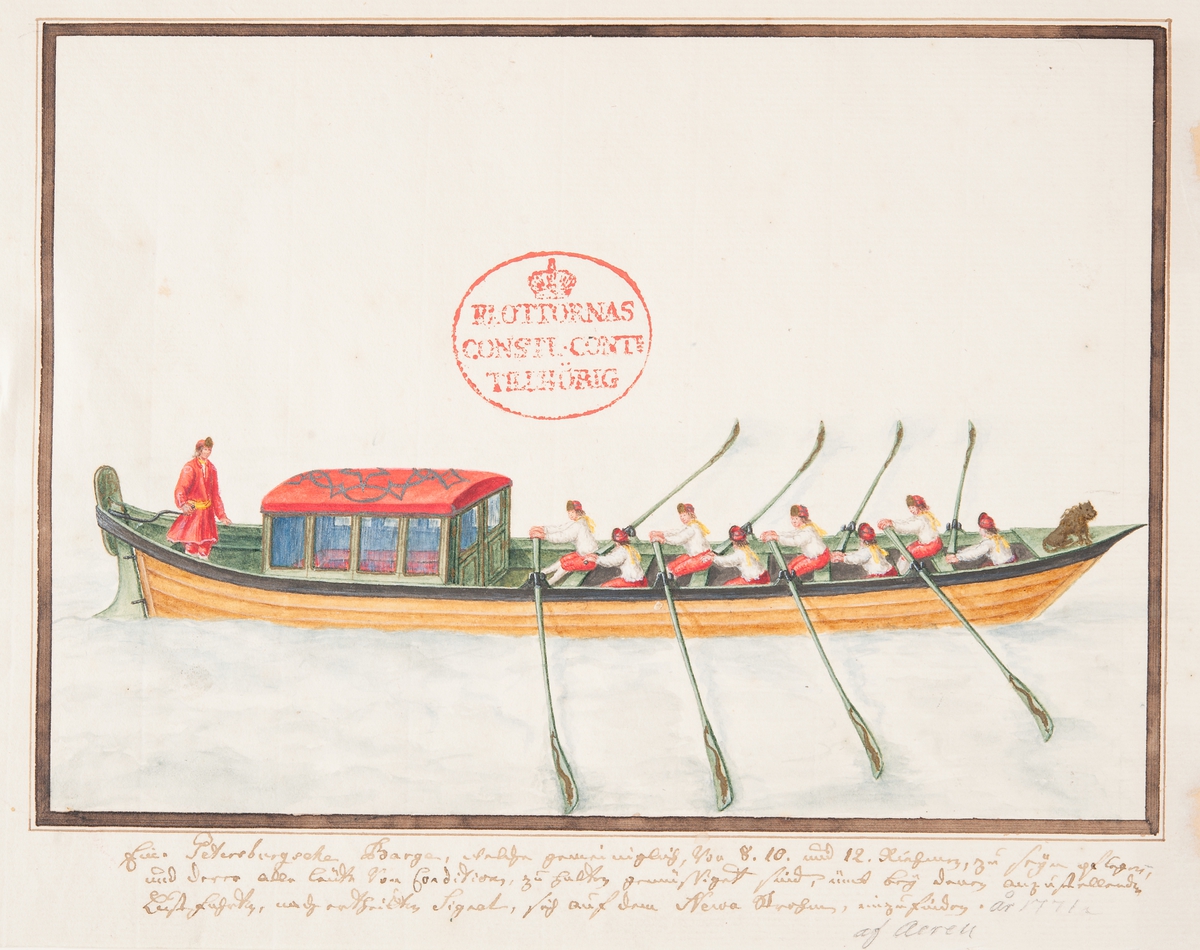 FLOTTORNAS
CONSTR·CONTR
TILLHÖRIG
Eine Petersburgsche Barge, welche gemeiniglich, von 8. 10. und 12. Riehmen, zu seyn pflegen,
und deren alle Leüte von Condition, zu halten gemüssiget sind, umb bey denen anzustellenden
Lüst fahrten, nach ertheilten Signal, sich auf dem Newa Strohm, einzufinden. År 1771
af Aerell